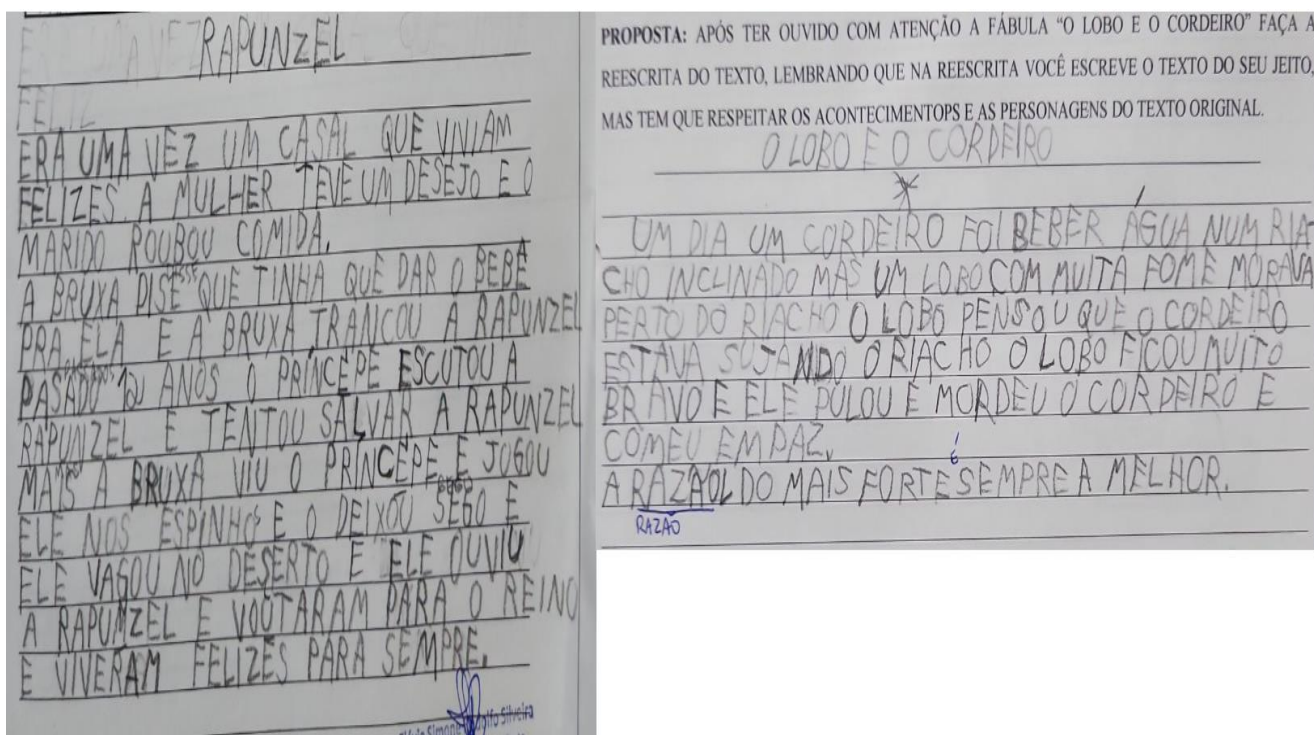 RAPUNZEL
FELIZ
ERA UMA VEZ UM CASAL QUE VIVIAM
FELIZES. A MULHER TEVE UM DESEJO E O
MARIDO ROUBOU COMIDA.
A BRUXA DISE QUE TINHA QUE DAR O BEBÊ
PRA ELA E A BRUXA TRANCOU A RAPUNZEL
PASADO 12 ANOS O PRÍNCEPE ESCUTOU A
RAPUNZEL E TENTOU SALVAR A RAPUNZEL
MAIS A BRUXA VIU O PRINCEPE E JOGOU
ELE NOS ESPINHOS E O DEIXOU SEGO E
ELE VAGOU NO DESERTO E ELE OUVIU
A RAPUNZEL E VOUTARAM PARA O REINO
E VIVERAM FELIZES PARA SEMPRE.
PROPOSTA: APÓS TER OUVIDO COM ATENÇÃO A FÁBULA “O LOBO E O CORDEIRO” FAÇA A
REESCRITA DO TEXTO, LEMBRANDO QUE NA REESCRITA VOCÊ ESCREVE O TEXTO DO SEU JEITO,
MAS TEM QUE RESPEITAR OS ACONTECIMENTOPS E AS PERSONAGENS DO TEXTO ORIGINAL.
O LOBO E O CORDEIRO
UM DIA UM CORDEIRO FOI BEBER ÁGUA NUM RIA-
CHO INCLINADO MAS UM LOBO COM MUITA FOME MORAVA
PERTO DO RIACHO O LOBO PENSOU QUE O CORDEIRO
ESTAVA SUJANDO O RIACHO O LOBO FICOU MUITO
BRAVO E ELE PULOU E MORDEU O CORDEIRO E
COMEU EM PAZ.
é
A RAZAOL DO MAIS FORTE SEMPRE A MELHOR.
RAZÃO